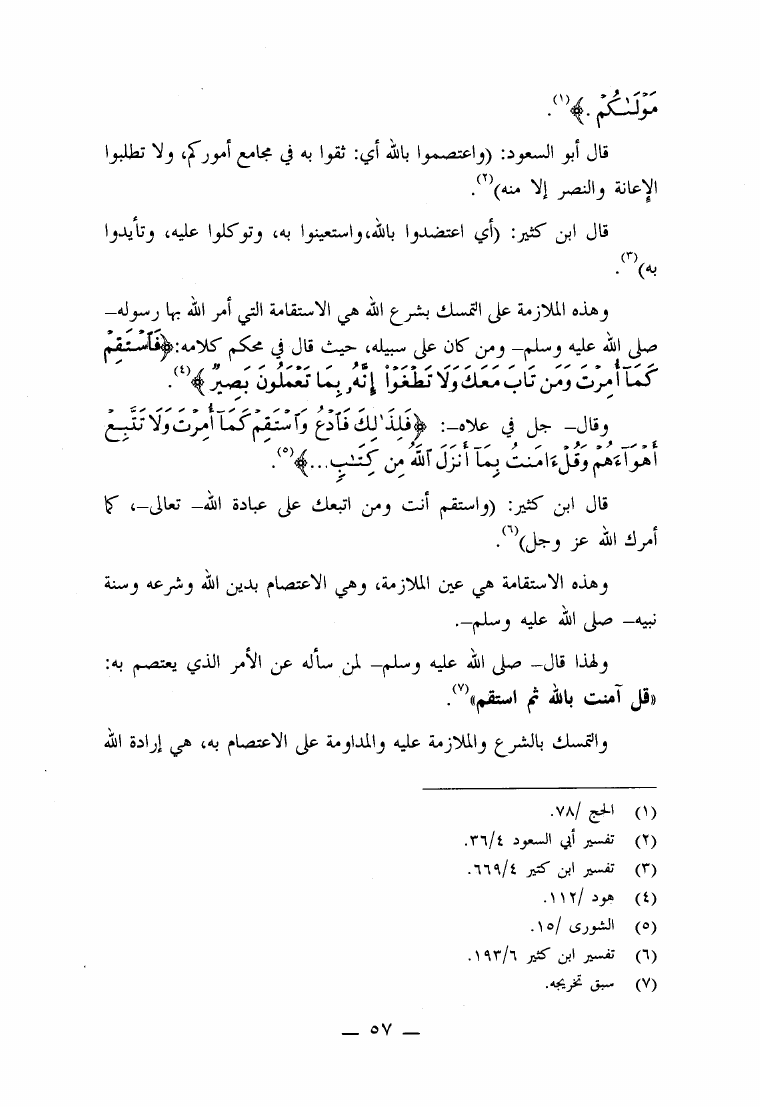 مَوْلَىٰكُمْ .﴾(١).
قال أبو السعود: (واعتصموا بالله أي: ثقوا به في مجامع أموركم، ولا تطلبوا
الإعانة والنصر إلا منه)(٢).
قال ابن كثير: (أي اعتضدوا بالله،واستعينوا به، وتوكلوا عليه، وتأيدوا
به)(٣).
وهذه الملازمة على التمسك بشرع الله هي الاستقامة التي أمر الله بها رسوله–
صلى الله عليه وسلم– ومن كان على سبيله، حيث قال في محكم كلامه:﴿فَٱسْتَقِمْ
كَمَآ أُمِرْتَ وَمَن تَابَ مَعَكَ وَلَا تَطْغَوْا۟ إِنَّهُۥ بِمَا تَعْمَلُونَ بَصِيرٌ ﴾(٤).
وقال– جل في علاه–: ﴿فَلِذَٰلِكَ فَٱدْعُ وَٱسْتَقِمْ كَمَآ أُمِرْتَ وَلَا تَتَّبِعْ
أَهْوَآءَهُمْ وَقُلْ ءَامَنتُ بِمَآ أَنزَلَ ٱللَّهُ مِن كِتَٰبٍ...﴾(٥).
قال ابن كثير: (واستقم أنت ومن اتبعك على عبادة الله– تعالى–، كما
أمرك الله عز وجل)(٦).
وهذه الاستقامة هي عين الملازمة، وهي الاعتصام بدين الله وشرعه وسنة
نبيه– صلى الله عليه وسلم–.
ولهذا قال– صلى الله عليه وسلم– لمن سأله عن الأمر الذي يعتصم به:
«قل آمنت بالله ثم استقم»(٧).
والتمسك بالشرع والملازمة عليه والمداومة على الاعتصام به، هي إرادة الله
(١) الحج /٧٨.
(٢) تفسير أبي السعود ٣٦/٤.
(٣) تفسير ابن كثير ٦٦٩/٤.
(٤) هود /١١٢.
(٥) الشورى /١٥.
(٦) تفسير ابن كثير ١٩٣/٦.
(٧) سبق تخريجه.
— ٥٧ —